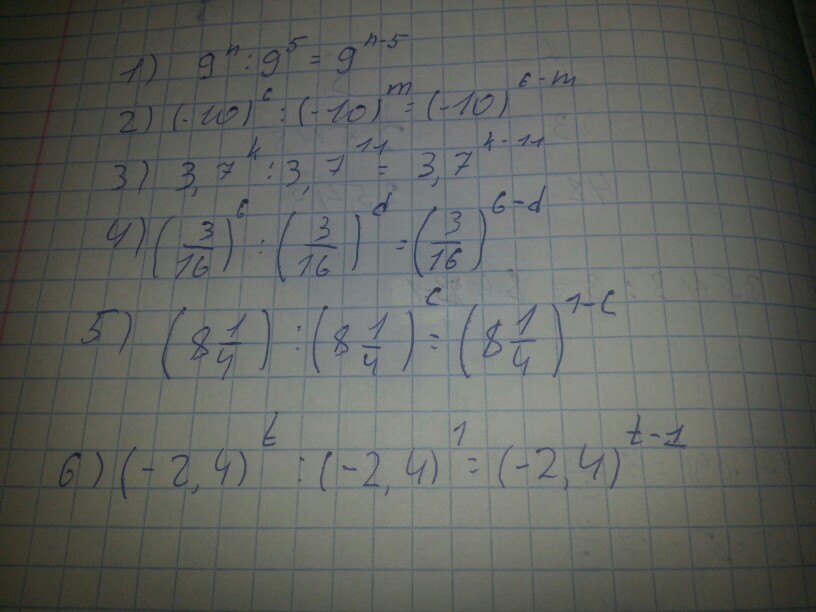 1) 9^n : 9^5 = 9^{n-5}
2) (-10)^6 : (-10)^m = (-10)^{6-m}
3) 3,7^k : 3,7^{11} = 3,7^{k-11}
4) (3/16)^6 : (3/16)^d = (3/16)^{6-d}
5) (8 1/4) : (8 1/4)^c = (8 1/4)^{1-c}
6) (-2,4)^t : (-2,4)^1 = (-2,4)^{t-1}